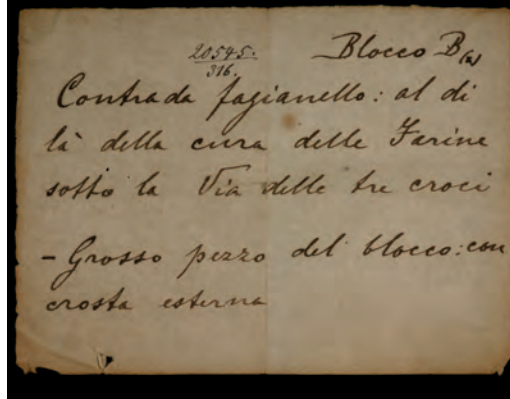 20545.
316.
Blocco B(2)
Contrada fagianello: al di
là della cura delle Farine
sotto la Via delle tre croci
- Grosso pezzo del blocco: con
crosta esterna